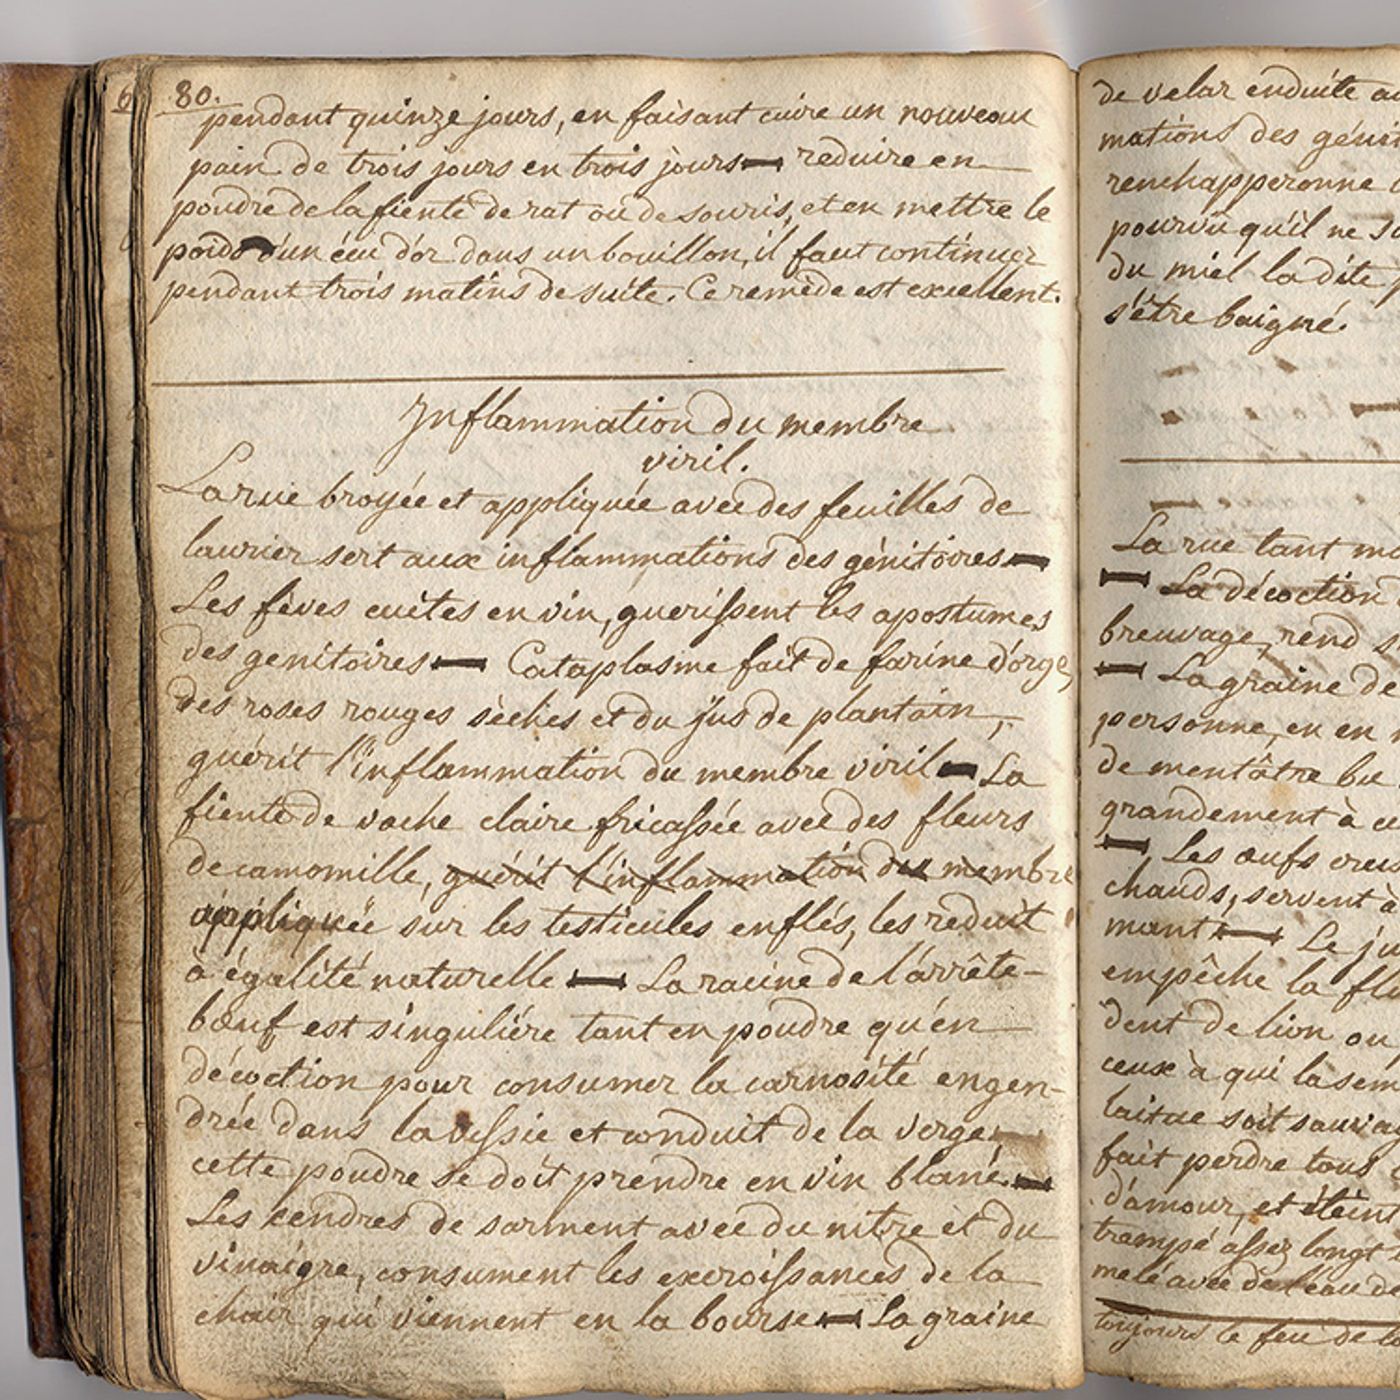 6
80.
pendant quinze jours, en faisant cuire un nouveau
pain de trois jours en trois jours — reduire en
poudre de la fiente de rat ou de souris, et en mettre le
poids d'un écu d'or dans un bouillon, il faut continuer
pendant trois matins de suite. Ce remède est excellent.
Inflammation du membre
viril.
La rue broyée et appliquée avec des feuilles de
laurier sert aux inflammations des génitoires —
Les fèves cuites en vin, guerissent les apostumes
des genitoires — Cataplasme fait de farine d'orge,
des roses rouges sèches et du jus de plantain,
guérit l'inflammation du membre viril — La
fiente de vache claire fricassée avec des fleurs
de camomille, guérit l'inflammation du membre
appliquée sur les testicules enflés, les reduit
à égalité naturelle — La racine de l'arrête-
bœuf est singulière tant en poudre qu'en
décoction pour consumer la carnosité engen-
drée dans la vessie et conduit de la verge,
cette poudre se doit prendre en vin blanc. —
Les cendres de sarment avec du nitre et du
vinaigre, consument les excroissances de la
chair qui viennent en la bourse — La graine
de velar enduite
mations des géni
renchapperonne
pourvû qu'il ne
du miel la dite
s'être baigné.
La rue tant
— La décoction
breuvage, rend
— La graine de
personne, en en
de mentâtre bu
grandement à
— Les œufs
chauds, servent à
mant — Le ju
empêche la
dent de lion ou
ceux à qui la
laitue soit
fait perdre tous
d'amour, et
trempé assez longt
melé avec de l'eau de
toujours le feu de